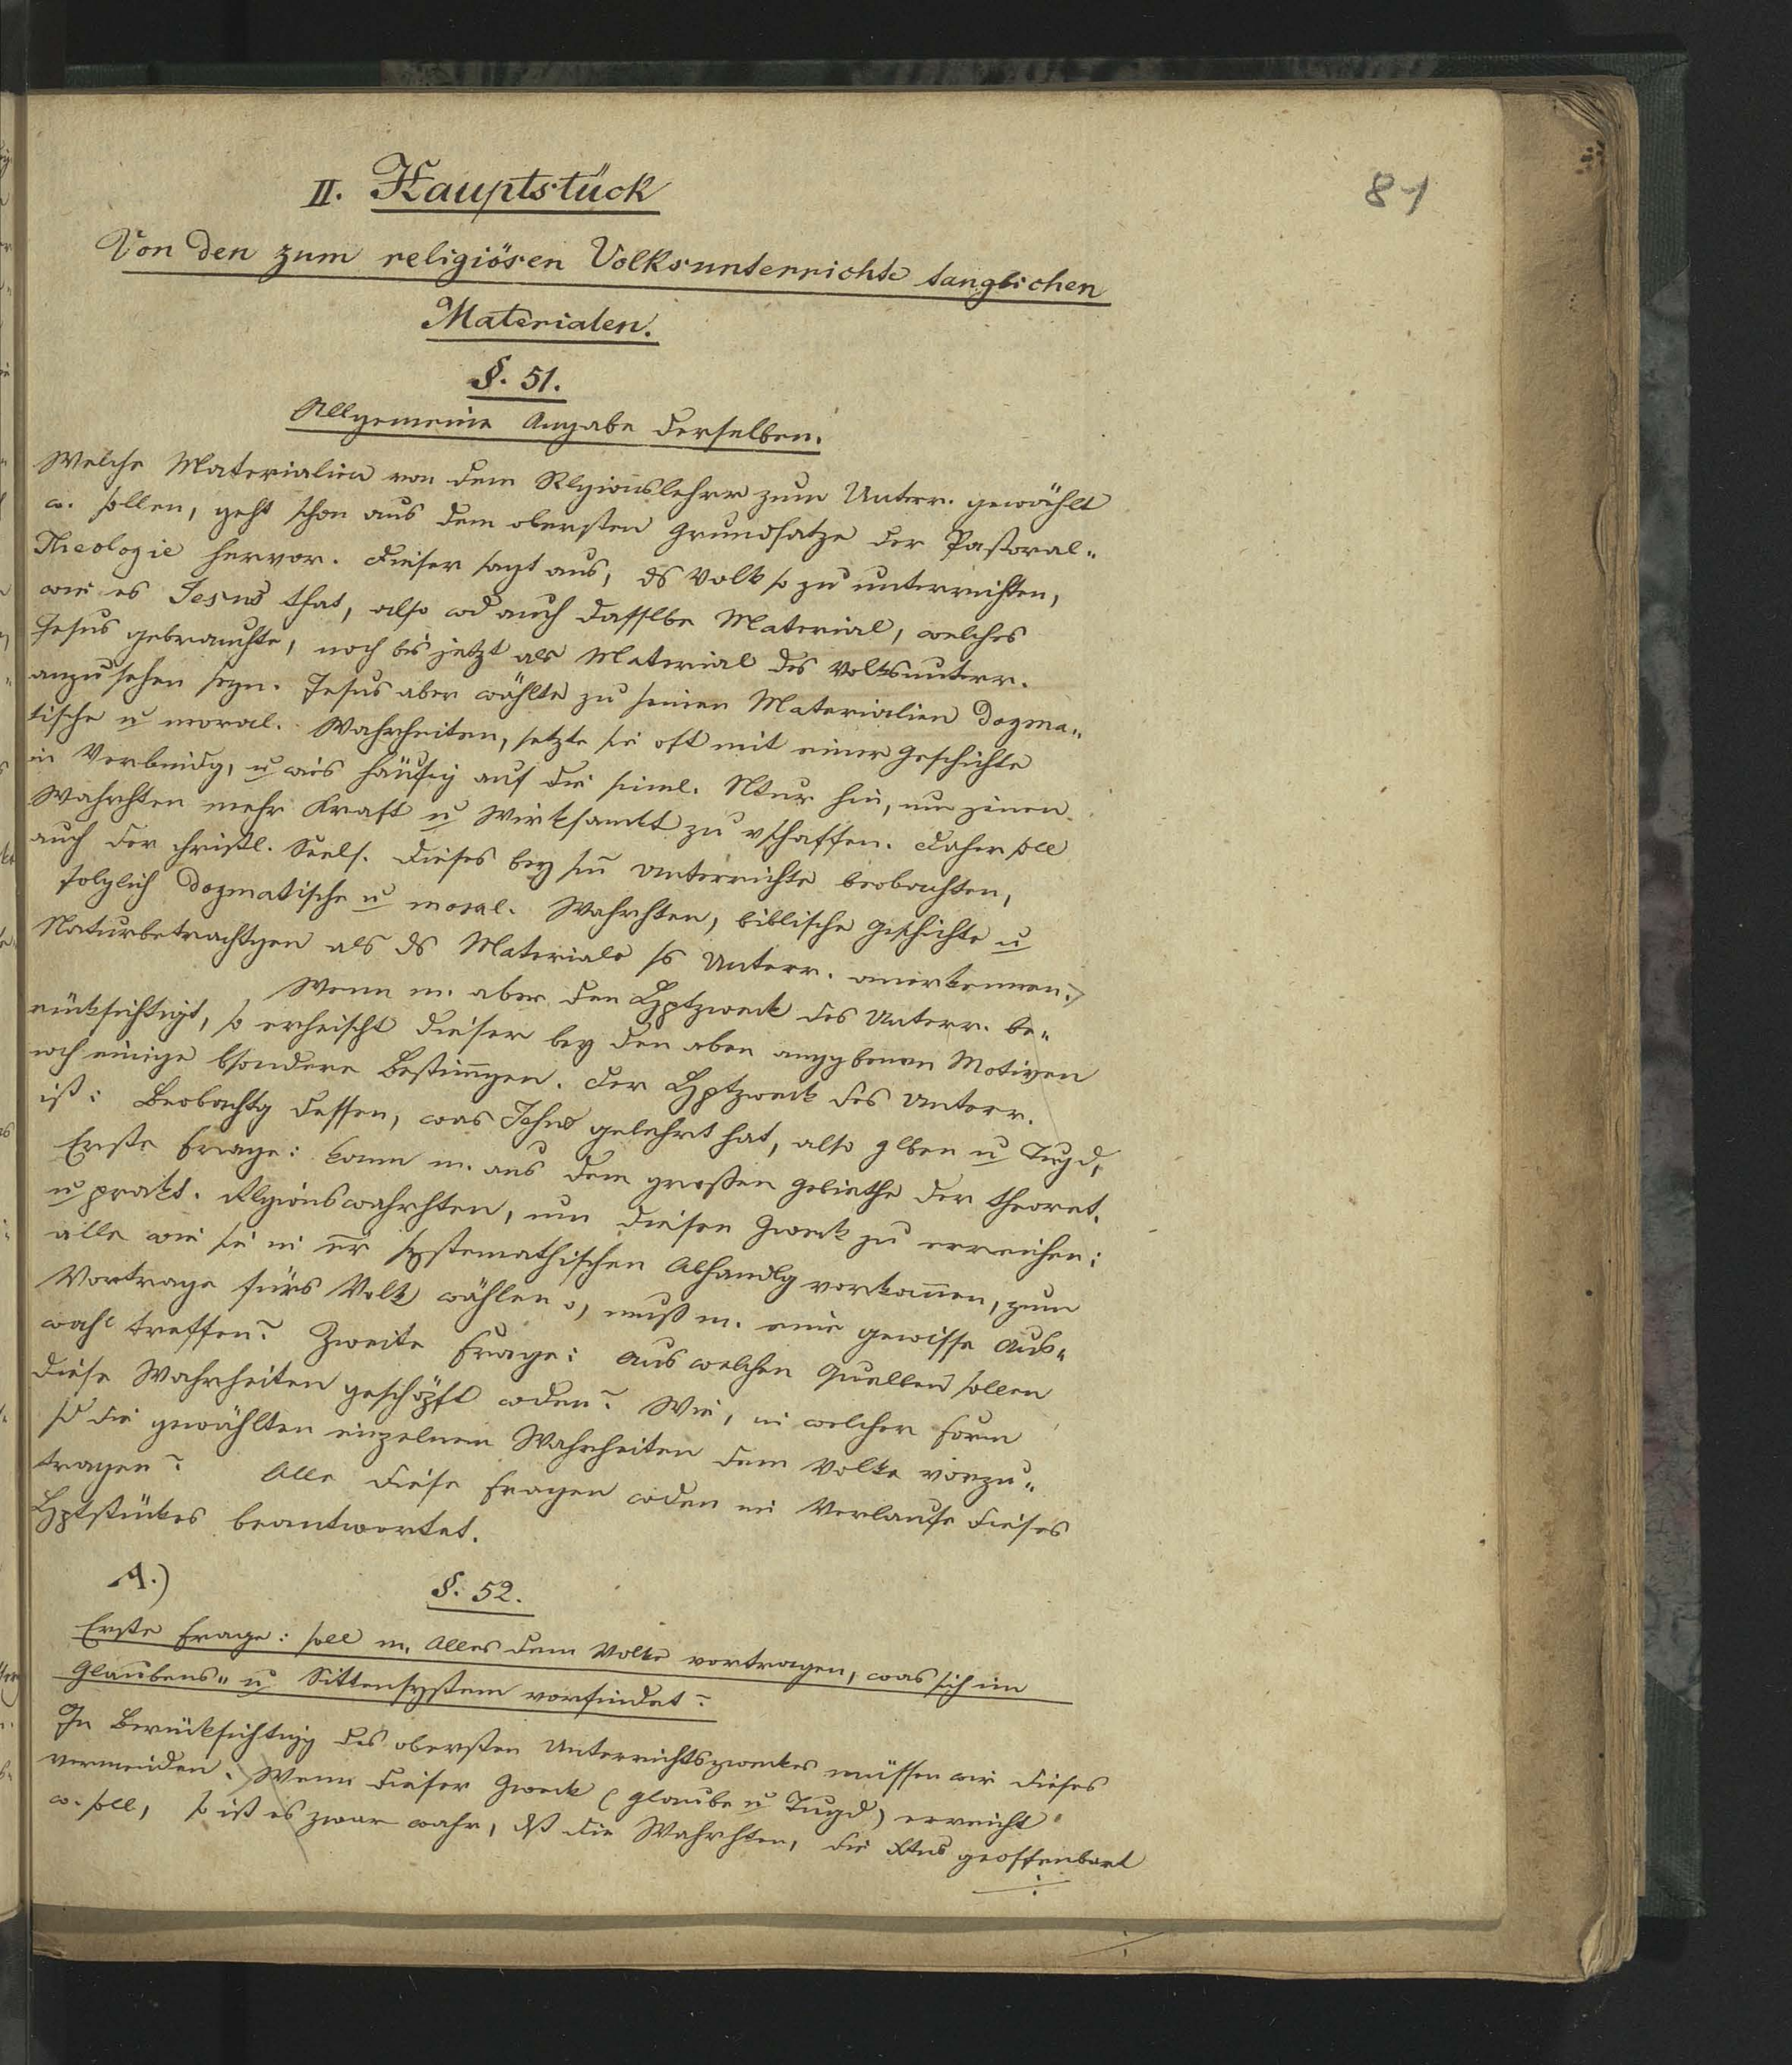 81
II. Hauptstück
Von den zum religiösen Volksunterrichte tauglichen
Materialen.
§. 51.
Allgemeine Angabe derselben.
Welche Materialien von dem Rlgionslehrer zum Unterr. gewählt
w. sollen, geht schon aus dem obersten Grundsatze der Pastoral-
Theologie hervor. Dieser sagt aus, ds Volk so zu unterrichten,
wie es Jesus that, also wd auch dasselbe Material, welches
Jesus gebrauchte, noch bis jetzt als Material des Volksunterr.
anzusehen seyn. Jesus aber wählte zu seinen Materialien dogma-
tische u moral. Wahrheiten, setzte sie oft mit einer Geschichte
in Verbindg, u wies häufig auf die sinnl. Ntur hin, um jenen
Wahrhten mehr Kraft u Wirksamkt zu vschaffen. Daher soll
auch der christl. Seels. dieses bey sm Unterrichte beobachten,
folglich dogmatische u moral. Wahrhten, biblische Geschichte u
Naturbetrachtgen als ds Materiale ss Unterr. anerkennen.
Wenn m. aber den Hptzweck des Unterr. be-
rücksichtigt, so erheischt dieser bey den oben anggbenen Motiven
noch einige bsondere Bestimgen. Der Hptzweck des Unterr.
ist: Beobachtg dessen, was Jesus gelehrt hat, also Glben u Tugd,
Erste Frage: kann m. aus dem großen Gebiethe der theoret.
u prakt. Rlgionswahrhten, um diesen Zweck zu erreichen:
alle wie sie in er systemathischen Abhandlg vorkommen, zum
Vortrage fürs Volk wählen o, muß m. eine gewisse Aus-
wahl treffen? Zweite Frage: Aus welchen Quellen sollen
diese Wahrheiten geschöpft wden? Wie, in welcher Form
sd die gewählten einzelnen Wahrheiten dem Volke vorzu-
tragen? Alle diese Fragen wden im Verlaufe dieses
Hptstückes beantwortet.
A.) §. 52.
Erste Frage: soll m. Alles dem Volke vortragen, was sich im
Glaubens- u Sittensystem vorfindet?
In Berücksichtigg des obersten Unterrichtszweckes müssen wir dieses
vermeiden. Wenn dieser Zweck (Glaube u Tugd) erreicht
w. soll, so ist es zwar wahr, dß die Wahrhten, die Xtus geoffenbart